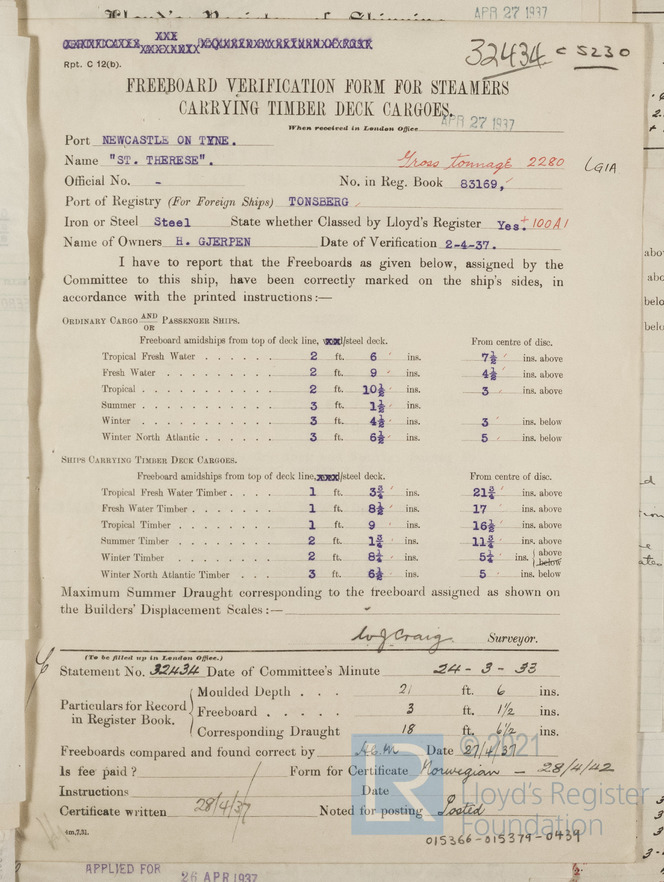 APR 27 1937
32434 C 5230
Rpt. C 12(b).
FREEBOARD VERIFICATION FORM FOR STEAMERS
CARRYING TIMBER DECK CARGOES.
When received in London Office APR 27 1937
Port NEWCASTLE ON TYNE.
Name "ST. THERESE". Gross tonnage 2280 LG1A
Official No. - No. in Reg. Book 83169,
Port of Registry (For Foreign Ships) TONSBERG
Iron or Steel Steel State whether Classed by Lloyd's Register Yes. +100A1
Name of Owners H. GJERPEN Date of Verification 2-4-37.
I have to report that the Freeboards as given below, assigned by the
Committee to this ship, have been correctly marked on the ship's sides, in
accordance with the printed instructions:—
ORDINARY CARGO AND/OR PASSENGER SHIPS.
Freeboard amidships from top of deck line, xxxx/steel deck. From centre of disc.
Tropical Fresh Water 2 ft. 6 ins. 7½ ins. above
Fresh Water 2 ft. 9 ins. 4½ ins. above
Tropical 2 ft. 10½ ins. 3 ins. above
Summer 3 ft. 1½ ins.
Winter 3 ft. 4½ ins. 3 ins. below
Winter North Atlantic 3 ft. 6½ ins. 5 ins. below
SHIPS CARRYING TIMBER DECK CARGOES.
Freeboard amidships from top of deck line, xxxx/steel deck. From centre of disc.
Tropical Fresh Water Timber 1 ft. 3¾ ins. 21¾ ins. above
Fresh Water Timber 1 ft. 8½ ins. 17 ins. above
Tropical Timber 1 ft. 9 ins. 16½ ins. above
Summer Timber 2 ft. 1¾ ins. 11¾ ins. above
Winter Timber 2 ft. 8¼ ins. 5¼ ins. above below
Winter North Atlantic Timber 3 ft. 6½ ins. 5 ins. below
Maximum Summer Draught corresponding to the freeboard assigned as shown on
the Builders' Displacement Scales:—
W J Craig. Surveyor.
(To be filled up in London Office.)
Statement No. 32434 Date of Committee's Minute 24-3-33
Particulars for Record in Register Book.
Moulded Depth 21 ft. 6 ins.
Freeboard 3 ft. 1½ ins.
Corresponding Draught 18 ft. 6½ ins.
Freeboards compared and found correct by Date 27/4/37
Is fee paid? Form for Certificate Norwegian — 28/4/42
Instructions Date
Certificate written 28/4/37 Noted for posting Posted
4m,7,31.
© 2021
Lloyd's Register
Foundation
015366-015379-0439
APPLIED FOR 26 APR 1937